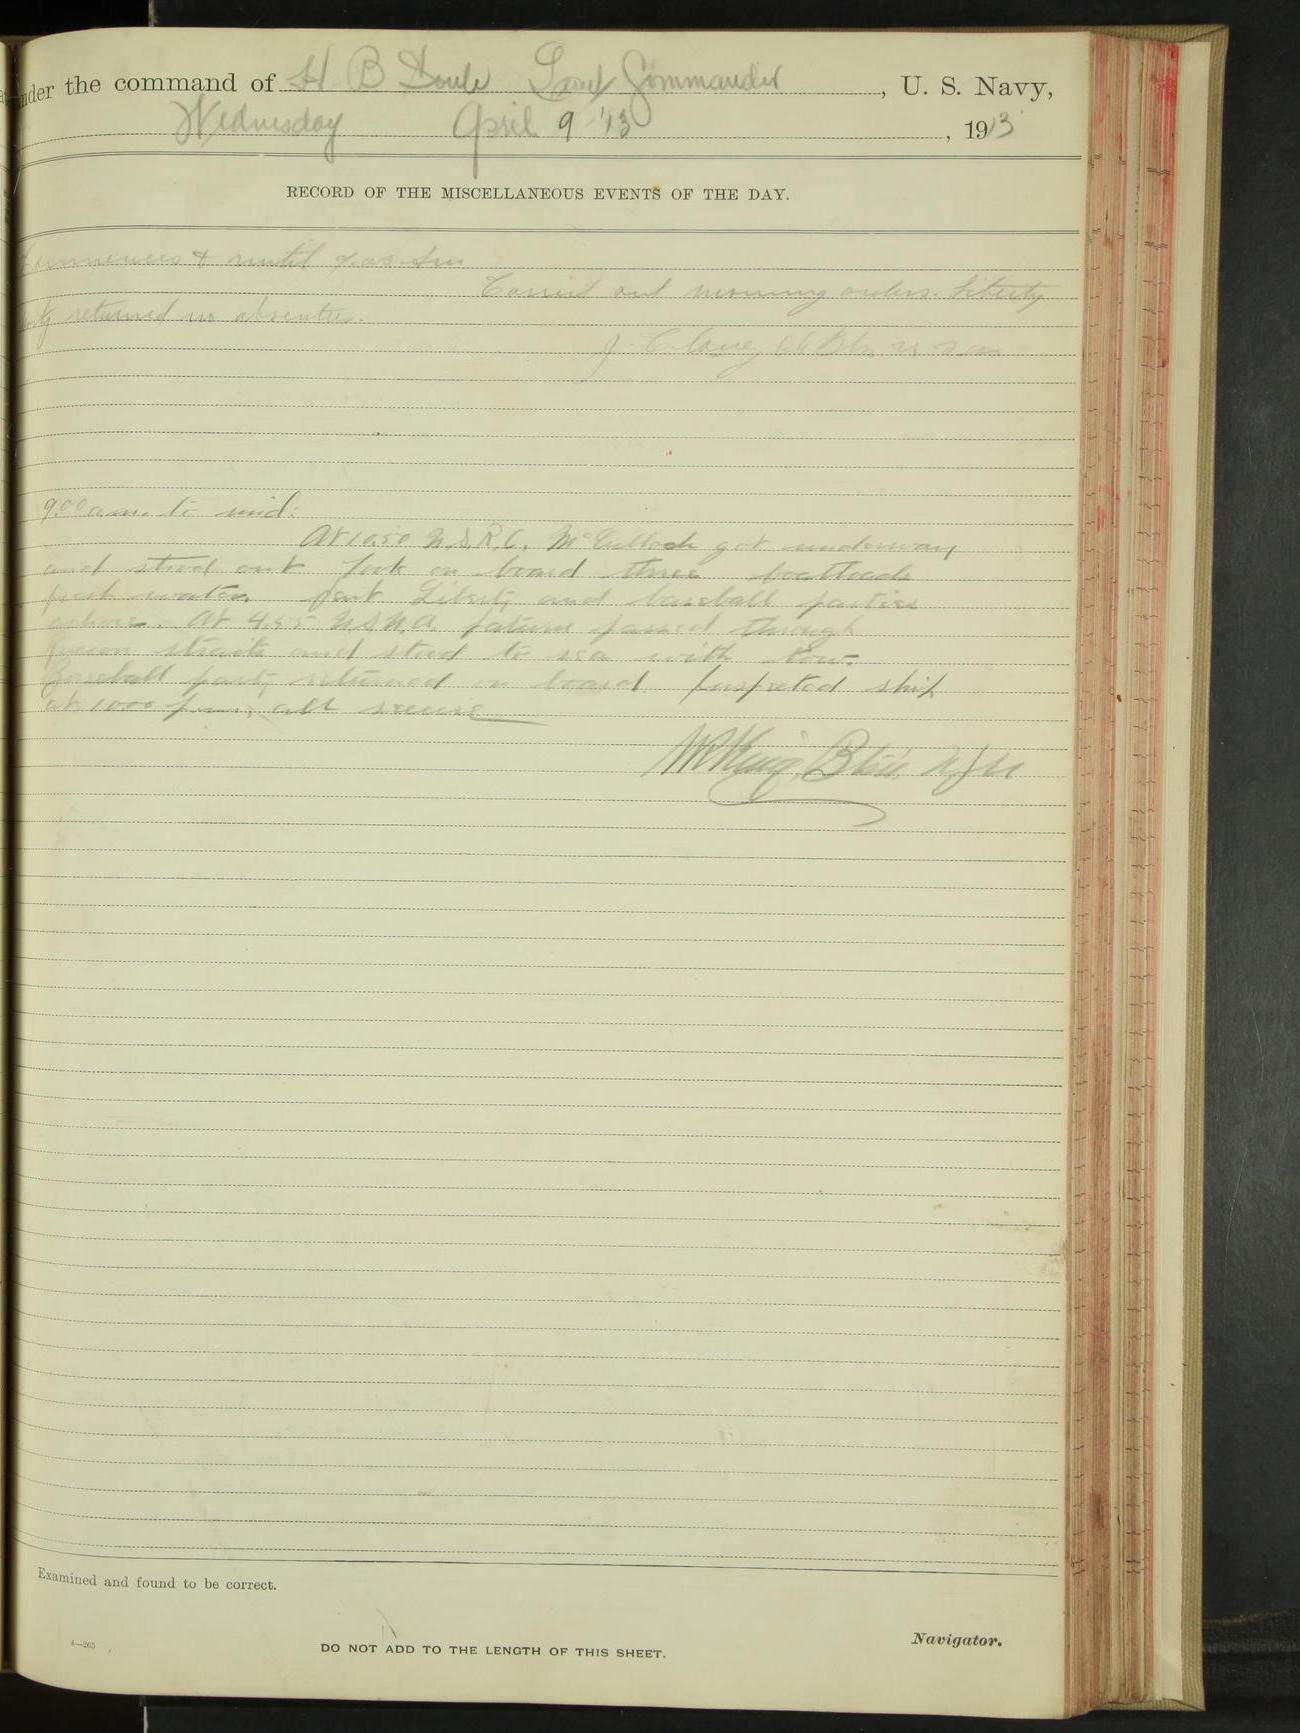 nder the command of H B Soule Lieut Commander, U. S. Navy,
Wednesday April 9 '13, 1913
RECORD OF THE MISCELLANEOUS EVENTS OF THE DAY.
Commences & until
Carried out morning orders. Liberty
party returned no absentees.
J.
9.00 a.m. to mid:
At 10.50 U.S.R.C. McCulloch got underway
and stood out Took on board three boatloads
fresh water. Sent Liberty and baseball parties
ashore. At 4.55 U.S.N.A. Saturn passed through
straits and stood to sea with tow.
Baseball party returned on board. Inspected ship
at 1000 p.m., all secure
Btsn. U.S.N.
Examined and found to be correct.
4—265
DO NOT ADD TO THE LENGTH OF THIS SHEET.
Navigator.